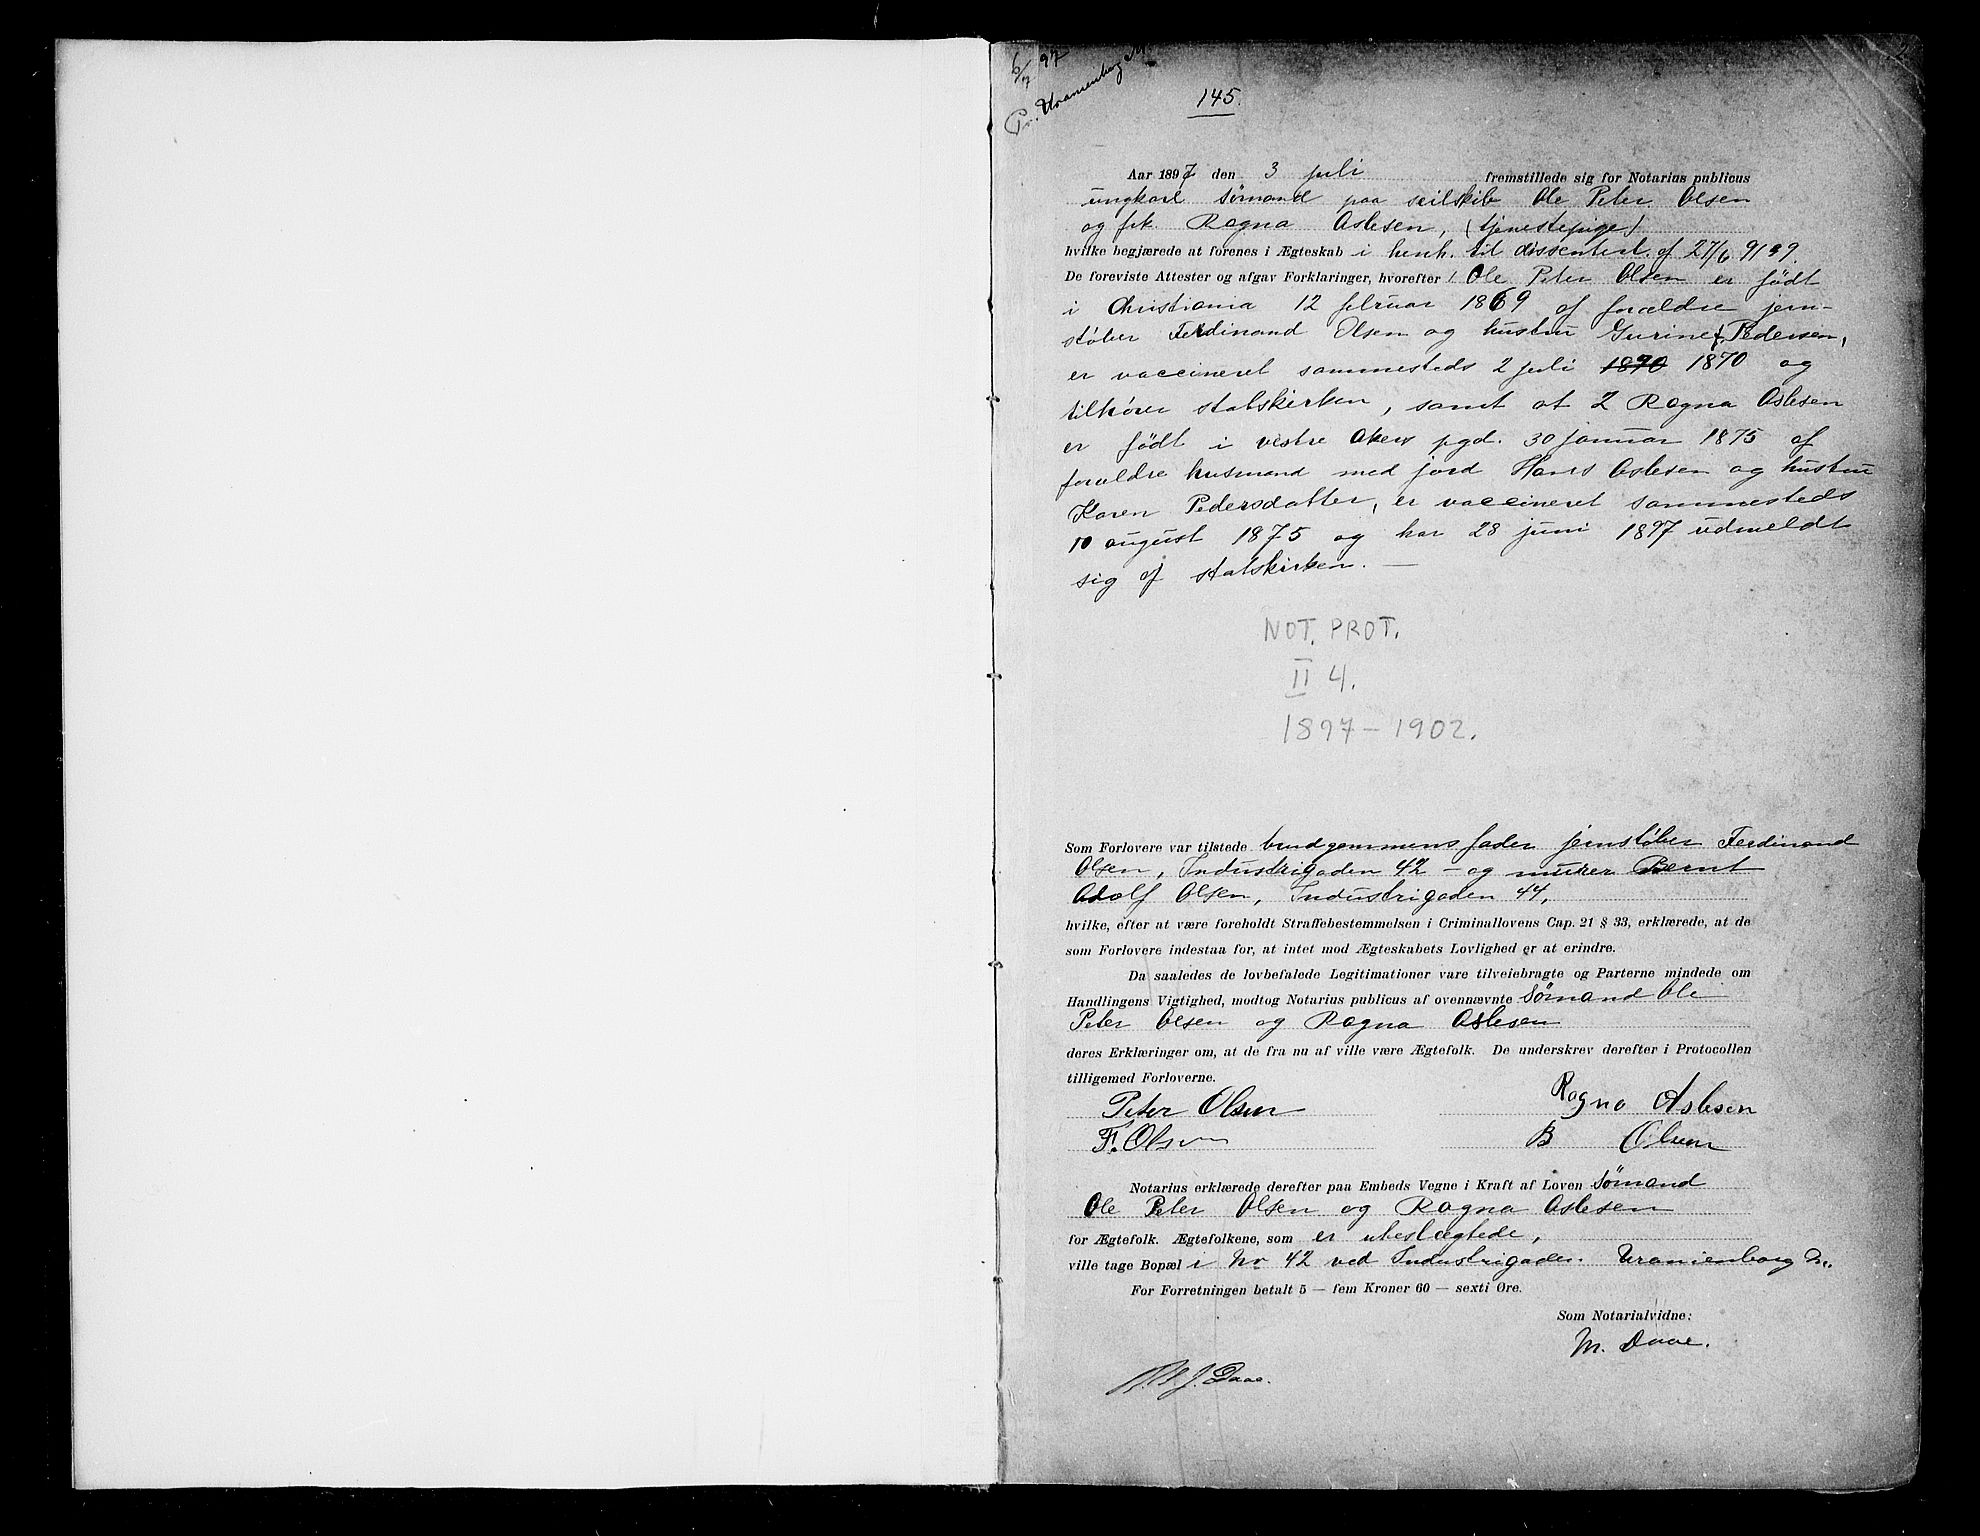 6/7 97
Pr. Uranienborg M.
145.
Aar 1897 den 3 juli fremstillede sig for Notarius publicus
ungkarl sømand paa seilskib Ole Peter Olsen
og frk. Ragna Aslesen, (tjenestepige)
hvilke begjærede at forenes i Ægteskab i henh. til dissenterl. af 27/6 91 § 9.
De foreviste Attester og afgav Forklaringer, hvorefter 1 Ole Peter Olsen er født
i Christiania 12 februar 1869 af forældre jern-
støber Ferdinand Olsen og hustru Gurine f. Pedersen,
er vaccineret sammesteds 2 juli 1890 1870 og
tilhører statskirken, samt at 2 Ragna Aslesen
er født i vestre Akers pgd. 30 januar 1875 af
forældre husmand med jord Hans Aslesen og hustru
Karen Pedersdatter, er vaccineret sammesteds
10 august 1875 og har 28 juni 1897 udmeldt
sig af statskirken. —
NOT. PROT.
II 4.
1897 – 1902.
Som Forlovere var tilstede brudgommens fader jernstøber Ferdinand
Olsen, Industrigaden 42 – og murer Bernt
Adolf Olsen, Industrigaden 44,
hvilke, efter at være foreholdt Straffebestemmelsen i Criminallovens Cap. 21 § 33, erklærede, at de
som Forlovere indestaa for, at intet mod Ægteskabets Lovlighed er at erindre.
Da saaledes de lovbefalede Legitimationer vare tilveiebragte og Parterne mindede om
Handlingens Vigtighed, modtog Notarius publicus af ovennævnte Sømand Ole
Peter Olsen og Ragna Aslesen
deres Erklæringer om, at de fra nu af ville være Ægtefolk. De underskrev derefter i Protocollen
tilligemed Forloverne.
Peter Olsen Ragna Aslesen
F. Olsen B Olsen
Notarius erklærede derefter paa Embeds Vegne i Kraft af Loven Sømand
Ole Peter Olsen og Ragna Aslesen
for Ægtefolk. Ægtefolkene, som er ubeslægtede,
ville tage Bopæl i No 42 ved Industrigaden. Uranienborg M.
For Forretningen betalt 5 — fem Kroner 60 — sexti Øre.
Som Notarialvidne:
M. Daae.
J. Daae.